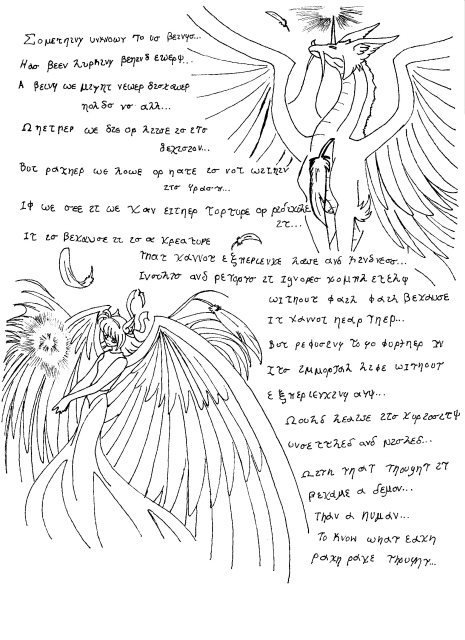 Σομετηινγ υνκνοων Το υσ βεινγσ...
Ηασ βεεν λυρκινγ βεηινδ εωερψ...
Α βεινγ ωε μιγητ νεωερ δισκοωερ
ηολδσ νο αλλ...
Ωηετηερ ωε διε ορ λιωε ισ ιτσ
δεχισιον...
Βυτ ραχηερ ωε λοωε ορ ηατε ισ νοτ ωιτηιν
ιτσ γρασπ...
Ιφ ωε σεε ιτ ωε χαν ειτηερ τορτυρε ορ ριδιχυλε
ιτ...
Ιτ ισ βεχαυσε ιτ ισ α κρεατυρε
τηατ χαννοτ εξπεριενχε λοωε ανδ κινδνεσσ...
Ινσυλτσ ανδ ρετορτσ ιτ ιγνορεσ
ωιτηουτ φαιλ φαιλ βεχαυσε
Ιτ χαννοτ ηεαρ τηεμ...
Βυτ ρεφυσινγ το γο φυρτηερ ιν
Ιτσ ιμμορταλ λιφε ωιτηουτ
εξπεριενχινγ ανψ...
Ωουλδ λεαωε ιτσ χυριοσιτψ
υνσεττλεδ ανδ
Ωιτη τηατ τηουγητ ιτ
βεχαμε α δεμον...
τηαν α ηυμαν...
Το κνοω ωηατ εαχη
ραχη ραχε τηουγητ...